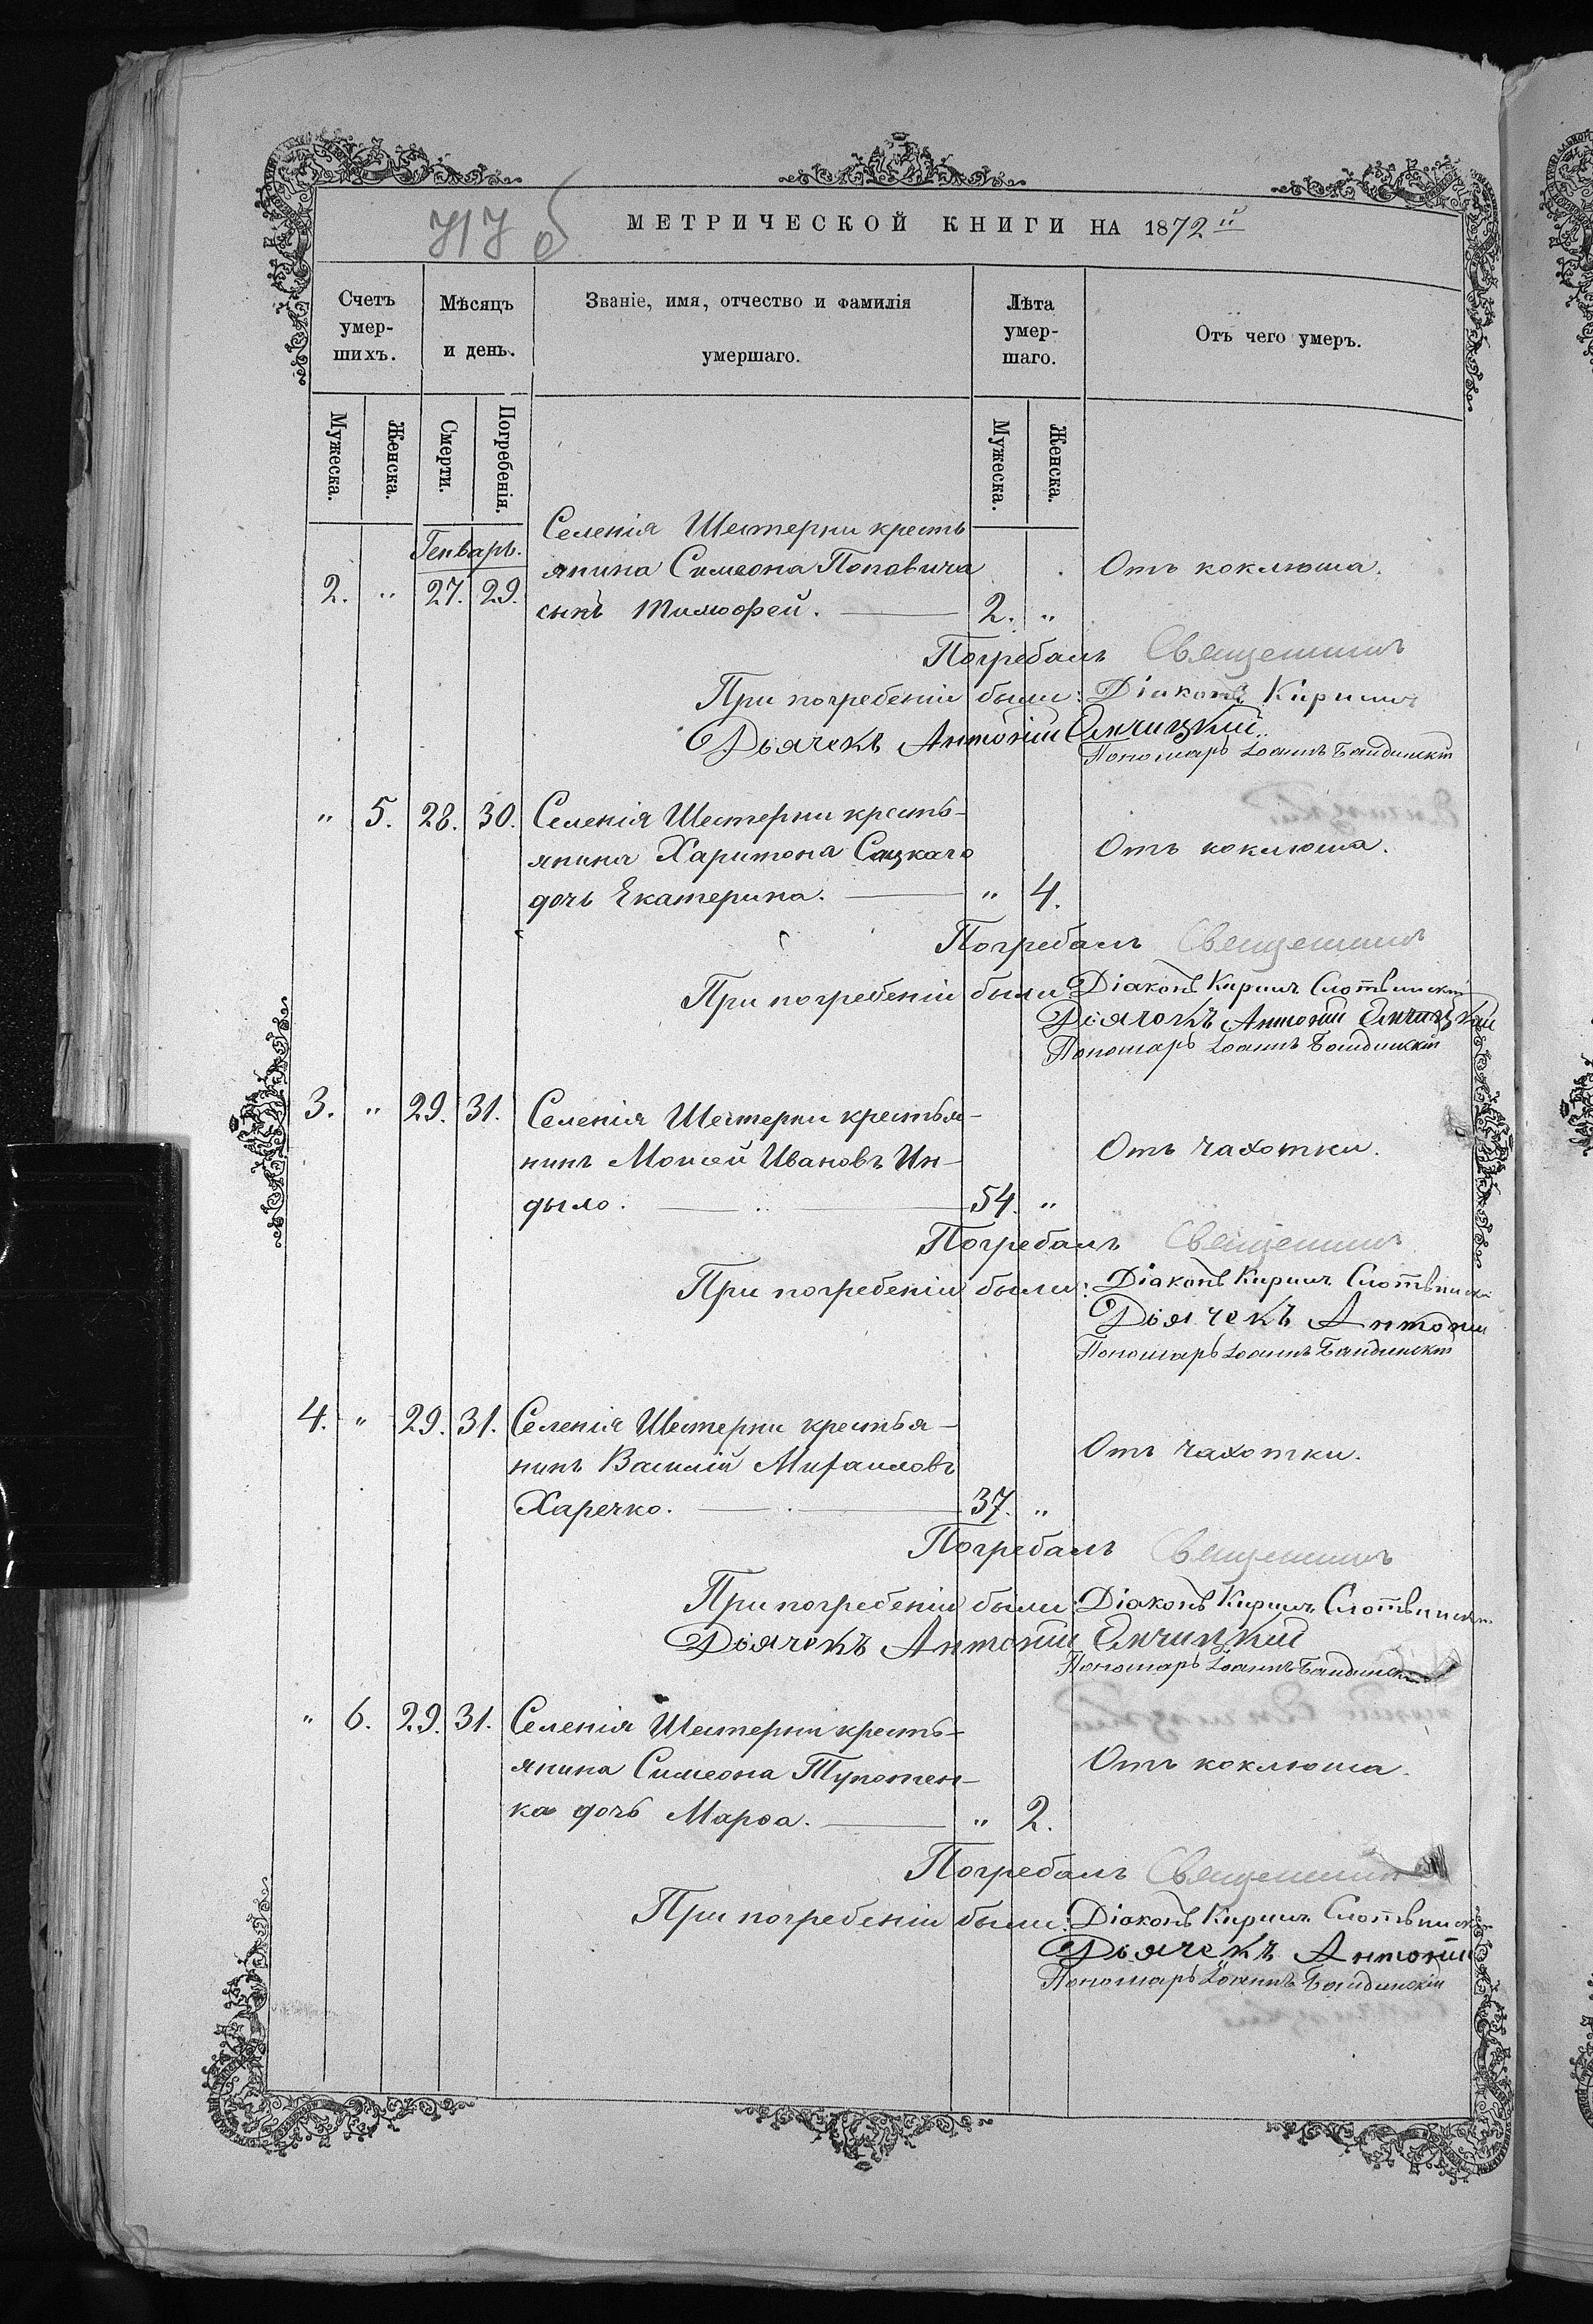 717 об
МЕТРИЧЕСКОЙ КНИГИ НА 1872й
Счетъ умер-шихъ.
Мѣсяцъ и день.
Званіе, имя, отчество и фамилія умершаго.
Лѣта умер-шаго.
Отъ чего умеръ.
Мужеска.
Женска.
Смерти.
Погребенія.
Мужеска.
Женска.
Генварь.
Селенія Шестерни кресть
янина Симеона Поповича Отъ коклюша.
2. " 27. 29. сынъ Тимофей. 2. "
Погребалъ Священникъ
При погребеніи были: Діаконъ Кириллъ
Дьячекъ Антоній
Пономарь Іоаннъ
" 5. 28. 30. Селенія Шестерни кресть-
янина Харитона Сацкаго Отъ коклюша.
дочь Екатерина. " 4.
Погребалъ Священникъ
При погребеніи были Діаконъ Кириллъ Слотвинскій
Дьячокъ Антоній
Пономарь Іоаннъ
3. " 29. 31. Селенія Шестерни крестья-
нинъ Моисей Ивановъ Ин- Отъ чахотки.
дыло. 54. "
Погребалъ Священникъ
При погребеніи были: Діаконъ Кириллъ Слотвински
Дьячекъ Антоній
Пономарь Іоаннъ
4. " 29. 31. Селенія Шестерни крестья-
нинъ Василій Михаиловъ Отъ чахотки.
Харечко. 37. "
Погребалъ Священникъ
При погребеніи были: Діаконъ Кириллъ Слотвинскій
Дьячекъ Антоній
Пономарь Іоаннъ
" 6. 29. 31. Селенія Шестерни кресть-
янина Симеона Тупотен- Отъ коклюша.
ка дочь Марѳа. " 2.
Погребалъ Священникъ
При погребеніи были: Діаконъ Кириллъ Слотвинскі
Дьячекъ Антоній
Пономарь Іоаннъ